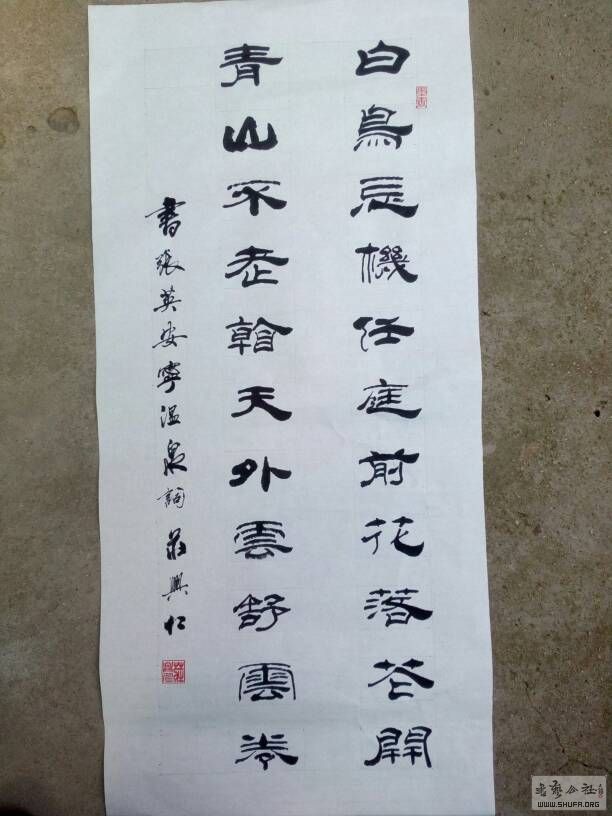 白鳥忘機任庭前花落花開
青山不老翰天外雲舒雲卷
書張英安寧温泉詞 莊興仁
书艺公社
WWW.SHUFA.ORG